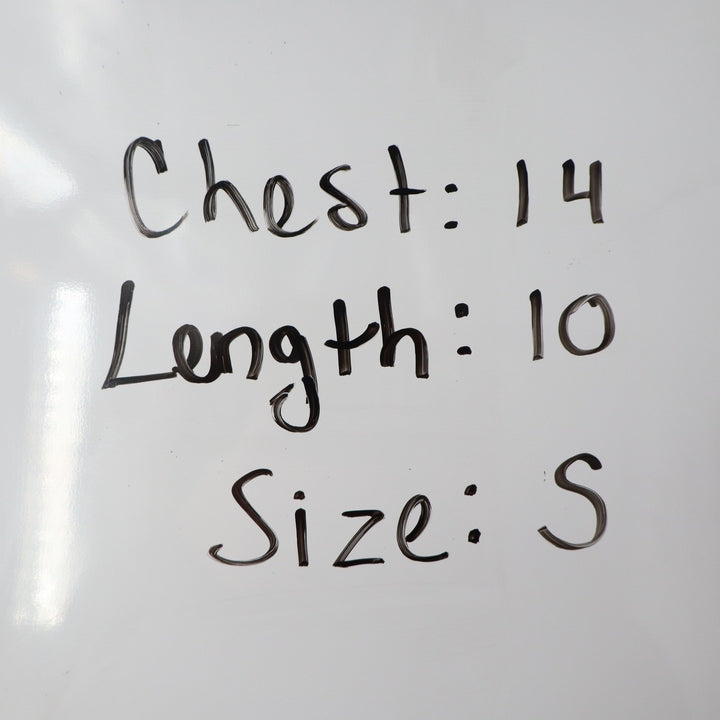 Chest: 14
Length: 10
Size: S